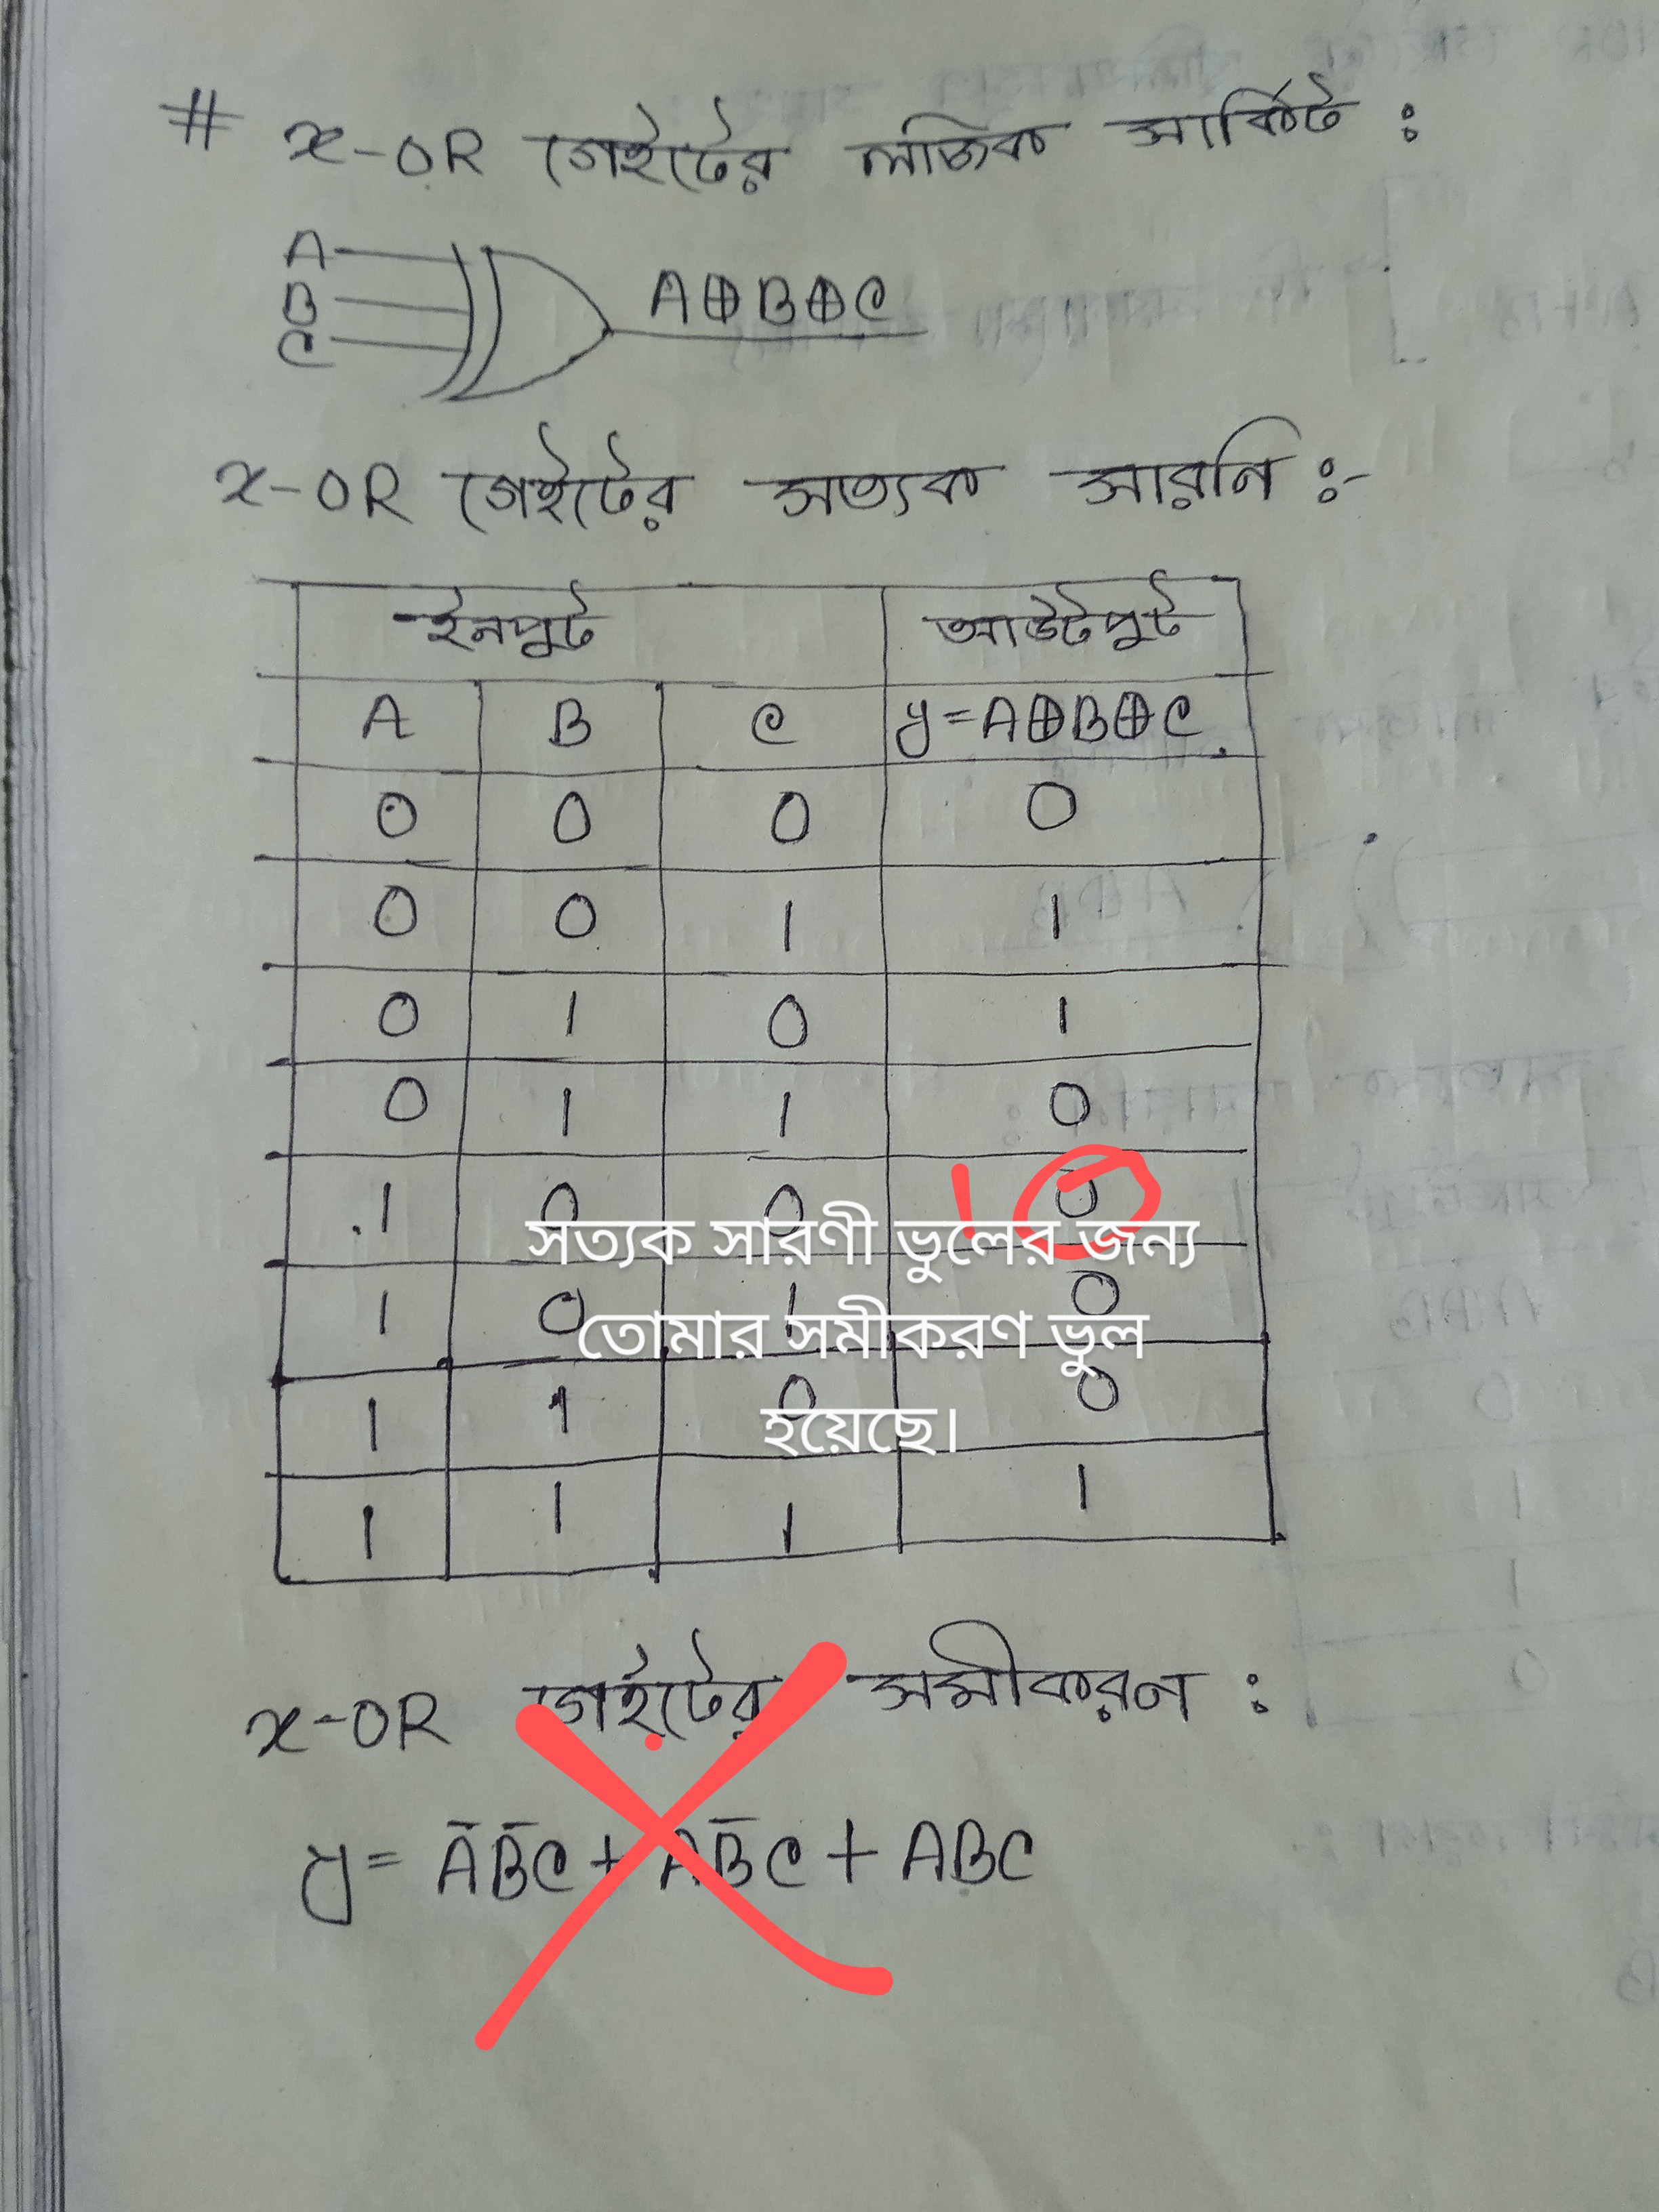 # x-OR গেইটের লজিক সার্কিট :
A
B
C
A⊕B⊕C
x-OR গেইটের সত্যক সারনি :-
ইনপুট আউটপুট
A B C y=A⊕B⊕C
0 0 0 0
0 0 1 1
0 1 0 1
0 1 1 0
1 0 0 1 0
সত্যক সারণী ভুলের জন্য
1 0 1 0
তোমার সমীকরণ ভুল
1 1 0 0
হয়েছে।
1 1 1 1
x-OR গেইটের সমীকরণ :
y = A̅B̅C + AB̅C + ABC